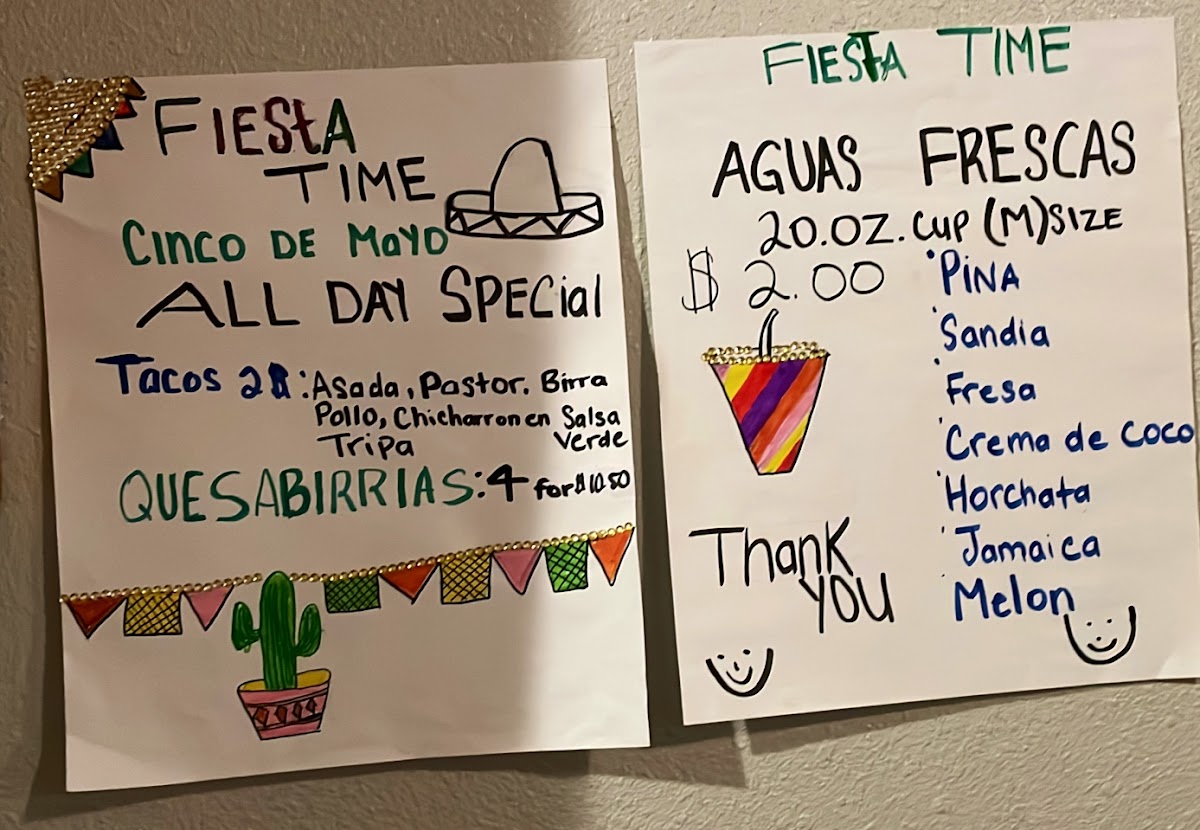 FIESTA
TIME
CINCO DE MAYO
ALL DAY SPECIAL
Tacos : Asada, Pastor. Birra
Pollo, Chicharron en Salsa
Tripa Verde
QUESABIRRIAS: 4 for $10.50
FIESTA TIME
AGUAS FRESCAS
20.OZ. CUP (M)SIZE
$ 2.00
PINA
Sandia
Fresa
Crema de COCO
Horchata
Jamaica
Melon
Thank
YOU